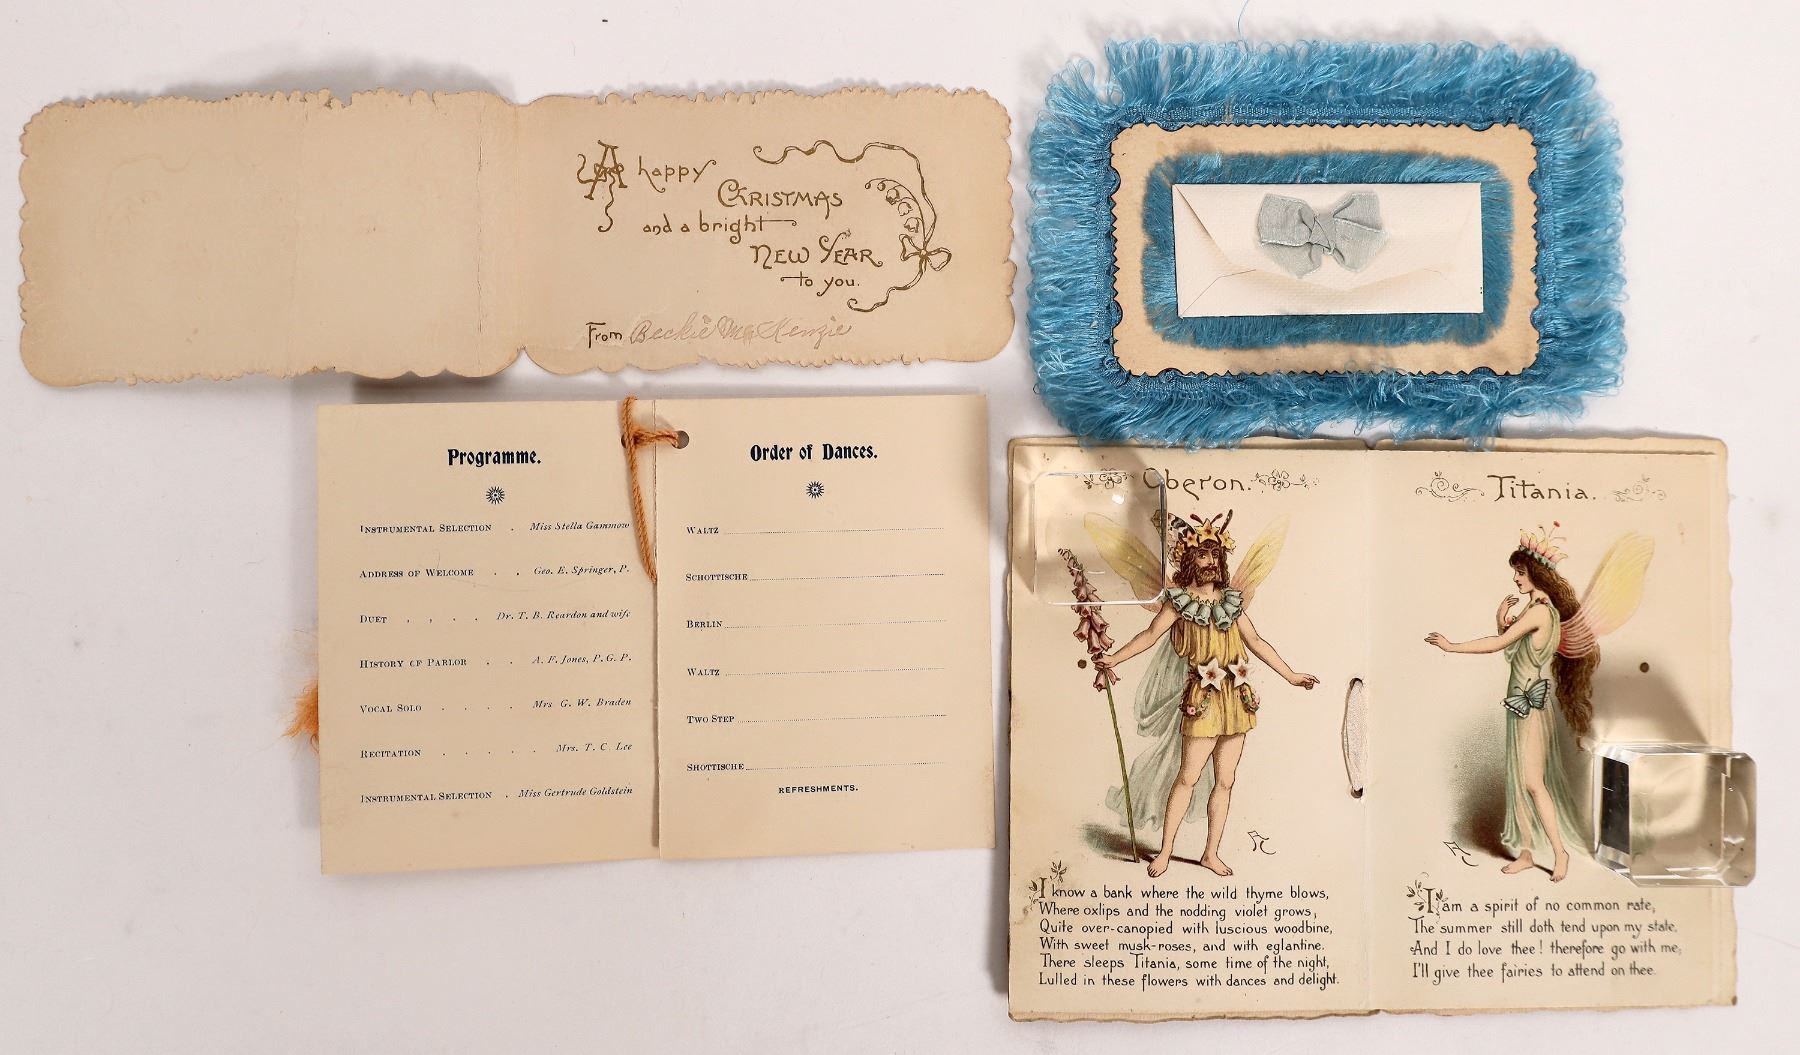 A happy
CHRISTMAS
and a bright
NEW YEAR
to you.
From Beckie MacKenzie
Programme.
INSTRUMENTAL SELECTION . Miss Stella Gammow
ADDRESS OF WELCOME . . Geo. E. Springer, P.
DUET . . . . Dr. T. B. Reardon and wife
HISTORY OF PARLOR . . A. F. Jones, P. G. P.
VOCAL SOLO . . . . Mrs. G. W. Braden
RECITATION . . . . . Mrs. T. C. Lee
INSTRUMENTAL SELECTION . Miss Gertrude Goldstein
Order of Dances.
WALTZ
SCHOTTISCHE
BERLIN
WALTZ
TWO STEP
SHOTTISCHE
REFRESHMENTS.
Oberon.
I know a bank where the wild thyme blows,
Where oxlips and the nodding violet grows;
Quite over-canopied with luscious woodbine,
With sweet musk-roses, and with eglantine.
There sleeps Titania, some time of the night,
Lulled in these flowers with dances and delight.
Titania.
I am a spirit of no common rate;
The summer still doth tend upon my state,
And I do love thee! therefore go with me;
I'll give thee fairies to attend on thee.